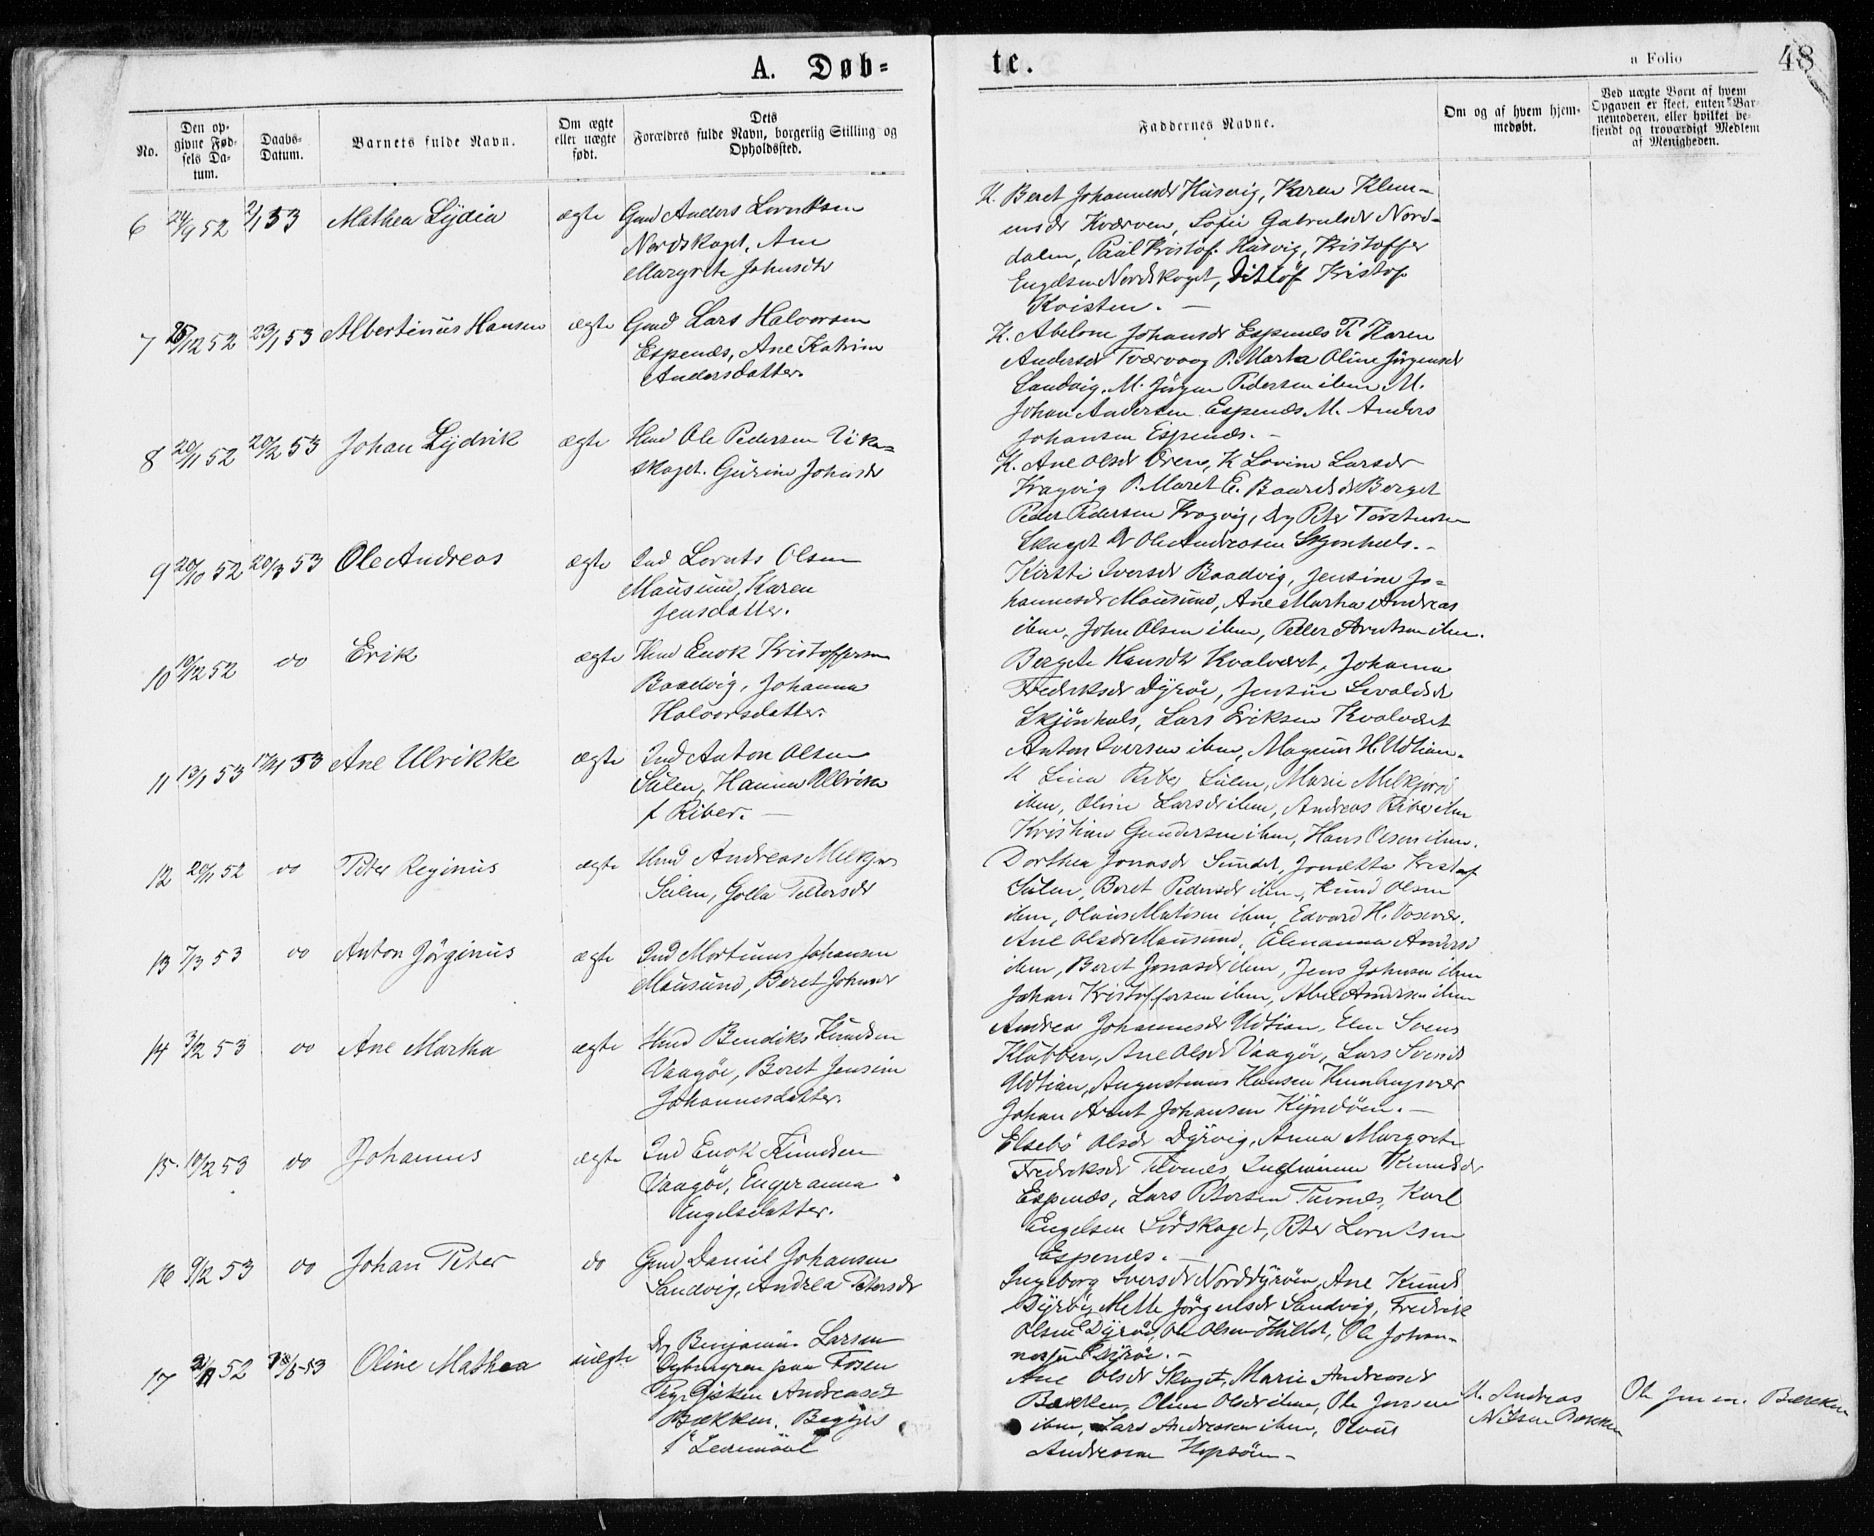 A. Døb=
te.
a Folio
48
No.
Den op-
givne Fød-
sels Da-
tum.
Daabs-
Datum.
Barnets fulde Navn.
Om ægte
eller uægte
født.
Dets
Forældres fulde Navn, borgerlig Stilling og
Opholdssted.
Faddernes Navne.
Om og af hvem hjem-
medøbt.
Ved uægte Børn af hvem
Opgaven er skeet, enten Bar-
nemoderen, eller hvilket be-
kjendt og troværdigt Medlem
af Menigheden.
6 24/9 52 2/1 53 Mathea Lydia ægte Gmd Anders Lorntsen
Nordskaget, Ane
Margrete Johnsdtr
K. Beret Johannesdr Husvig, Karen Klem-
ensdr Kværven, Sofie Gabrielsdr Nord-
dalen, Paul Kristof. Husvig, Kristoffer
Engelsen Nordskaget, Ditløf Kristof.
Kvisten. –
7 /12 52 23/1 53 Albertinus Hansen ægte Gmd Lars Halvorsen
Espenæs, Ane Katrine
Andersdatter.
K. Abelone Johansdr Espenæs P. Karen
Andersdr Tværvaag P. Marta Oline Jørgensdr
Sandvig. M. Jørgen Pedersen ibm M.
Johan Andersen Espenæs M. Anders
Johansen Espenæs. –
8 20/11 52 20/2 53 Johan Lydvik ægte Hmd Ole Pedersen Vika-
skaget. Gurine Johnsdr
K. Ane Olsdr Øren, K Lovine Larsdr
Kragvig P. Maret E. Baardsdr Berget
Peder Pedersen Kragvig, Peter
Skaget Ole Andreasen Skjønhals. –
9 20/10 52 20/3 53 Ole Andreas ægte Ind Lornts Olsen
Mausund, Karen
Jensdatter.
Kirsti Iversdr Baadvig, Jensine Jo-
hannesdr Mausund, Ane Marta Andreas
ibm, John Olsen ibm, Peter Arntsen ibm.
10 10/12 52 do Erik ægte Hmd Enok Kristoffersen
Baadvig, Johanna
Halvorsdatter.
Bergete Hansdtr Kvalværet, Johanna
Fredriksdr Dyrøe, Jensine Sivaldsdr
Skjönhals, Lars Eriksen Kvalværet
Anton Iversen ibm, Magnus H. Udtian.
11 13/1 53 53 Ane Ulrikke ægte Ind Anton Olsen
Sulen, Hanna Ulrikke
f Riber. –
Lina Riber Sulen, Marie
ibm, Oline Larsdr ibm, Andreas Riber ibm
Kristian Gundersen ibm, Hans Olsen ibm.
12 20/11 52 do Peter Reginus ægte Hmd Andreas
Sulen, Golla Petersdr
Dorthea Jonasdr Sundet, Jonetta Kristof
Sulen, Beret Pedersdr ibm, Knud Olsen
ibm, Olaus Matisen ibm, Edvard H. Vosvær.
13 7/3 53 do Anton Jörginus ægte Ind Mortinus Johansen
Mausund, Beret Johnsdr
Ane Olsdr Mausund, Elenanna Andersd
ibm, Beret Jonasdr ibm, Jens Johnsen ibm
Johan Kristoffersen ibm, Abel Andersen ibm
14 3/2 53 do Ane Marta ægte Hmd Bendiks Knudsen
Vaagöe, Beret Jensine
Johannesdatter.
Andrea Johannesdr Udtian, Elen Svens
Klubben, Ane Olsdr Vaagöe, Lars Svends
Udtian, Augustinus Hansen
Johan Arnt Johansen Kjyndöen. –
15. 10/2 53 do Johannes ægte Ind Enok Knudsen
Vaagöe, Engeranna
Engelsdatter.
Elsebö Olsdr Dyrvig, Anna Margrete
Fredriksdr Titrnes, Knudsdr
Espenæs, Lars Petersen Karl
Engelsen Sörskaget, Peter Lorntsen
Espenæs. –
16 9/2 53 do Johan Peter do Gmd Daniel Johansen
Sandvig, Andrea Petersdr
Ingeborg Iversdr Norddyröen, Ane Knuds
Dyröe, Mette Jörgensdr Sandvig, Fredrik
Olsen Dyröe, Ole Olsen Hullet, Ole Johan-
nesen Dyröe. –
17 52 53 Oline Mathea uægte Benjamin Larsen
paa Fosen
Pig. Andreasdr
Bækken. Begges
1ste Leiermaal
Ane Olsdr Skaget, Marie Andreasdr
Bækken, Oline Olsdr ibm, Ole Jensen
ibm, Lars Andreasen ibm, Olaus
Andreasen Hopsöen –
Andreas
Nilsen Bækken
Ole Jensen. Bækken